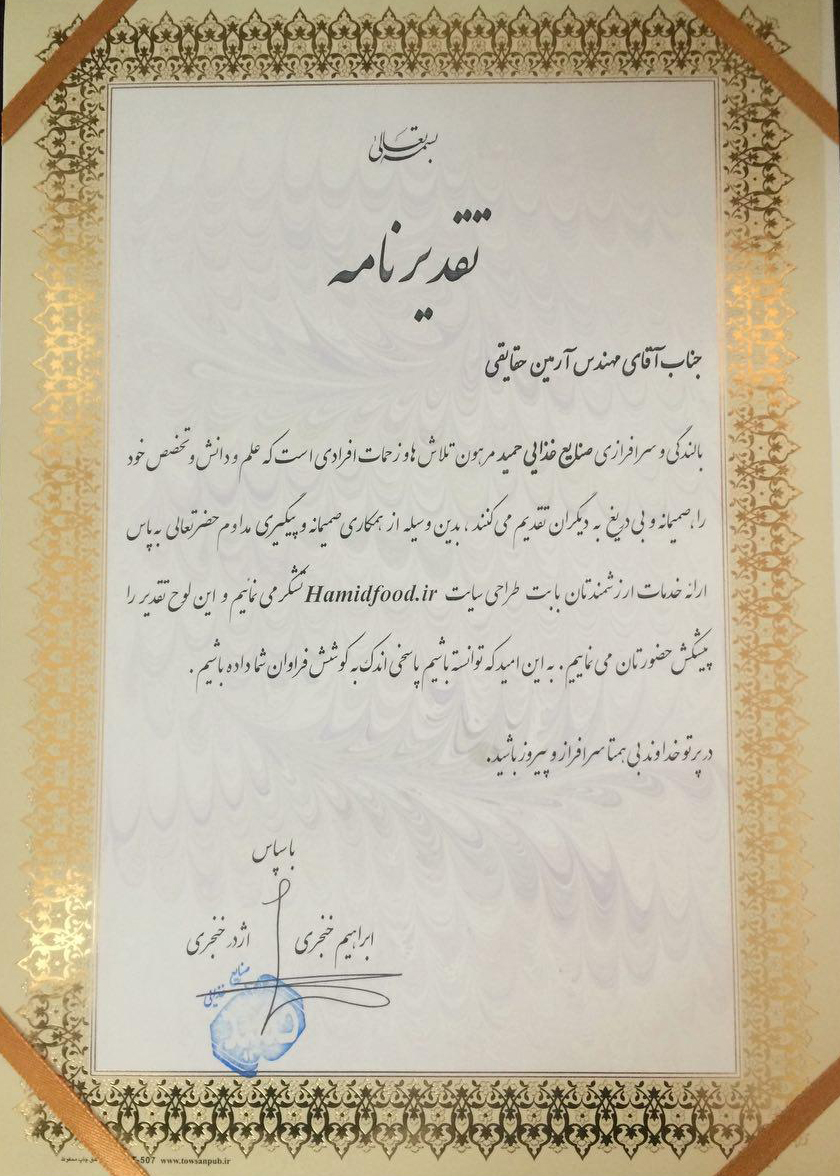 بسمه تعالی
تقدیر نامه
جناب آقای مهندس آرمین حقایقی
بالندگی و سرافرازی صنایع غذایی حمید مرهون تلاش ها و زحمات افرادی است که علم و دانش و تخصص خود
را، صمیمانه و بی دریغ به دیگران تقدیم می کنند ، بدین وسیله از همکاری صمیمانه و پیگیری مداوم حضرتعالی به پاس
ارائه خدمات ارزشمندتان بابت طراحی سایت Hamidfood.ir تشکر می نمائیم و این لوح تقدیر را
پیشکش حضورتان می نماییم . به این امید که توانسته باشیم پاسخی اندک به کوشش فراوان شما داده باشیم .
در پرتو خداوند بی همتا سرافراز و پیروز باشید.
با سپاس
ابراهیم خنجری اژدر خنجری
صنایع غذایی
507 www.towsanpub.ir